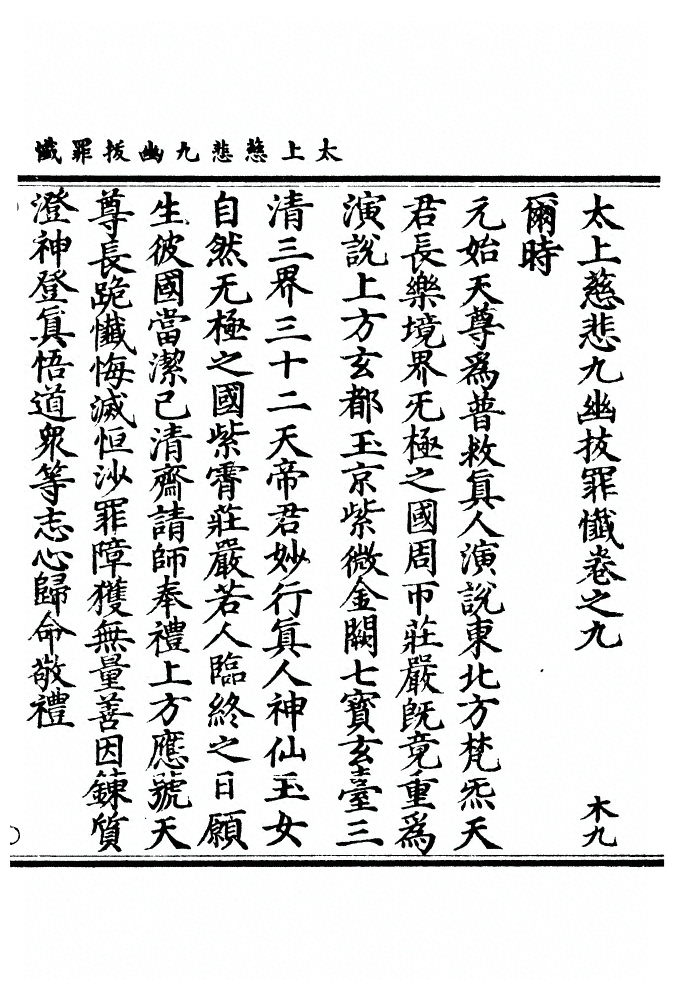 太上慈悲九幽拔罪懺
太上慈悲九幽拔罪懺卷之九 木九
爾時
元始天尊爲普救眞人演說東北方梵炁天
君長樂境界旡極之國周帀莊嚴旣竟重爲
演說上方玄都玉京紫微金闕七寶玄臺三
清三界三十二天帝君妙行眞人神仙玉女
自然无極之國紫霄莊嚴若人臨終之日願
生彼國當潔己清齋請師奉禮上方應號天
尊長跪懺悔滅恒沙罪障獲無量善因鍊質
澄神登眞悟道衆等志心歸命敬禮